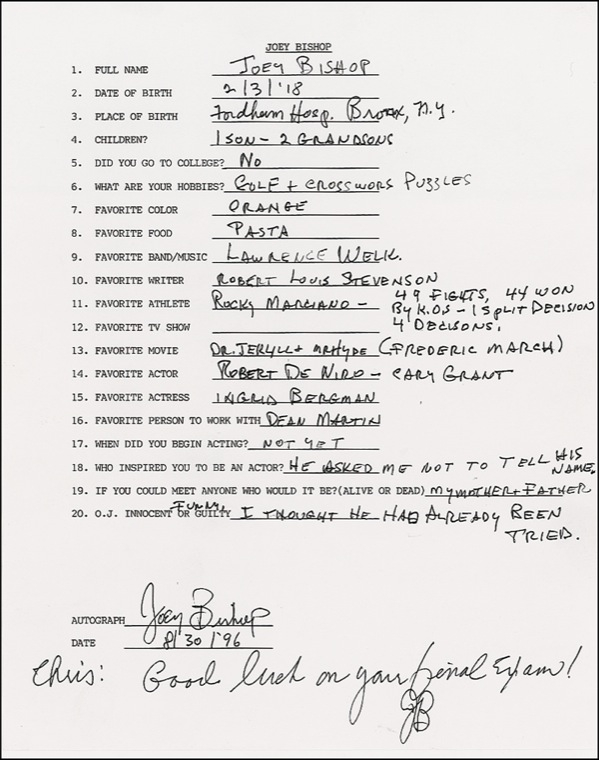 JOEY BISHOP
1. FULL NAME JOEY BISHOP
2. DATE OF BIRTH 2/3/'18
3. PLACE OF BIRTH Fordham Hosp. Bronx, N.Y.
4. CHILDREN? 1 SON - 2 GRANDSONS
5. DID YOU GO TO COLLEGE? No
6. WHAT ARE YOUR HOBBIES? GOLF + CROSSWORS PUZZLES
7. FAVORITE COLOR ORANGE
8. FAVORITE FOOD PASTA
9. FAVORITE BAND/MUSIC LAWRENCE WELK.
10. FAVORITE WRITER ROBERT LOUIS STEVENSON
11. FAVORITE ATHLETE ROCKY MARCIANO - 49 FIGHTS, 44 WON
By K.O.S - 1 SPLIT DECISION
4 DECISONS.
12. FAVORITE TV SHOW
13. FAVORITE MOVIE DR. JEKYLL + MR HYDE (FREDERIC MARCH)
14. FAVORITE ACTOR ROBERT DE NIRO - CARY GRANT
15. FAVORITE ACTRESS INGRID BERGMAN
16. FAVORITE PERSON TO WORK WITH DEAN MARTIN
17. WHEN DID YOU BEGIN ACTING? NOT YET
18. WHO INSPIRED YOU TO BE AN ACTOR? HE ASKED ME NOT TO TELL HIS
NAME.
19. IF YOU COULD MEET ANYONE WHO WOULD IT BE?(ALIVE OR DEAD) MY MOTHER + FATHER
FUNNY,
20. O.J. INNOCENT OR GUILTY I THOUGHT HE HAD ALREADY BEEN
TRIED.
AUTOGRAPH Joey Bishop
DATE 8/30/'96
Chris: Good luck on your final Exam!
JB